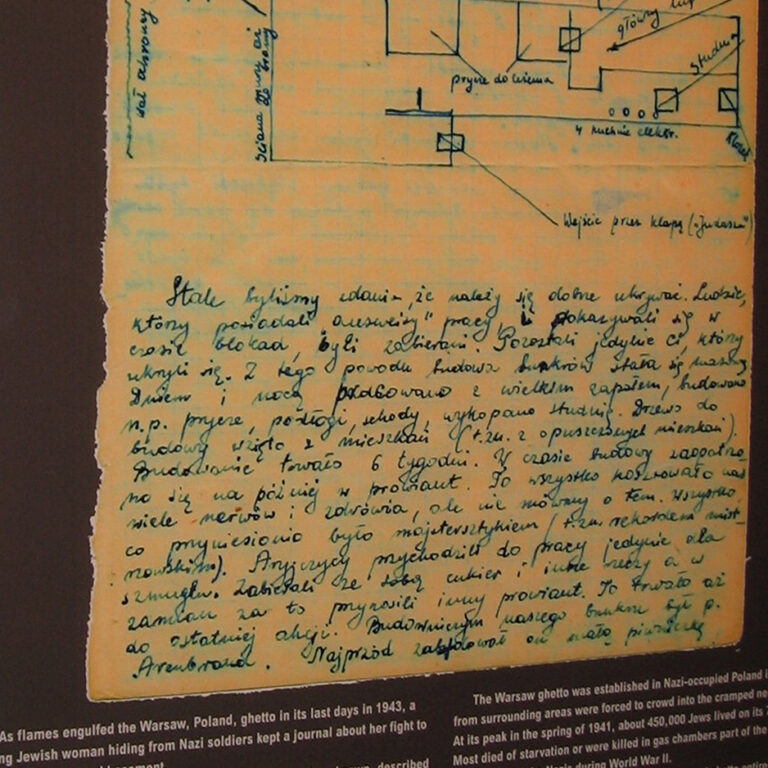 wał ochronny
Ściana
główny
Studnia
prycze do leżenia
4 kuchnie elektr.
Klozet
Wejście przez klapę („Judasza")
Stale byliśmy zdania, że należy się dobrze ukrywać. Ludzie,
którzy posiadali „ausweisy" pracy, i pokazywali się w
czasie blokad, byli zabierani. Pozostali jedynie ci, którzy
ukryli się. Z tego powodu budowa bunkrów stała się masową.
Dniem i nocą z wielkim zapałem, budowano
n.p. prycze, podłogi, schody, wykopano studnię. Drzewo do
budowy wzięto z mieszkań (t.zn. z opuszczonych mieszkań).
Budowanie trwało 6 tygodni. W czasie budowy zaopatrzo
no się na później w prowiant. To wszystko kosztowało nas
wiele nerwów i zdrowia, ale nie mówmy o tem. Wszystko
co przyniesiono było majstersztykiem (t.zn. rekordem mist-
rzowskim). Aryjczycy przychodzili do pracy jedynie dla
szmuglu. Zabierali ze sobą cukier i inne rzeczy a w
zamian za to przynosili inny prowiant. To trwało aż
do ostatniej akcji. Budowniczym naszego bunkru był p.
Arenbrand. Najprzód on małą piwniczkę,
As flames engulfed the Warsaw, Poland, ghetto in its last days in 1943, a
ng Jewish woman hiding from Nazi soldiers kept a journal about her fight to
basement
described
The Warsaw ghetto was established in Nazi-occupied Poland
from surrounding areas were forced to crowd into the cramped ne
At its peak in the spring of 1941, about 450,000 Jews lived on its
Most died of starvation or were killed in gas chambers part of the
Nazis during World War II.